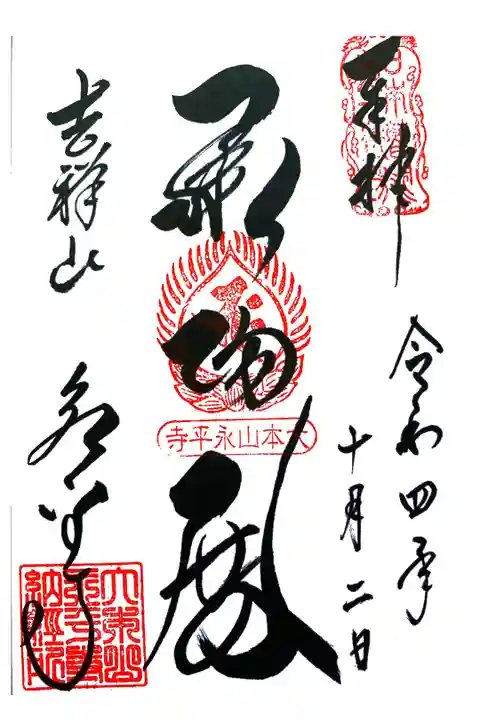 奉拝
令和四年
十月二日
承陽殿
大本山永平寺
吉祥山
永平寺
大本山
永平寺
納経所